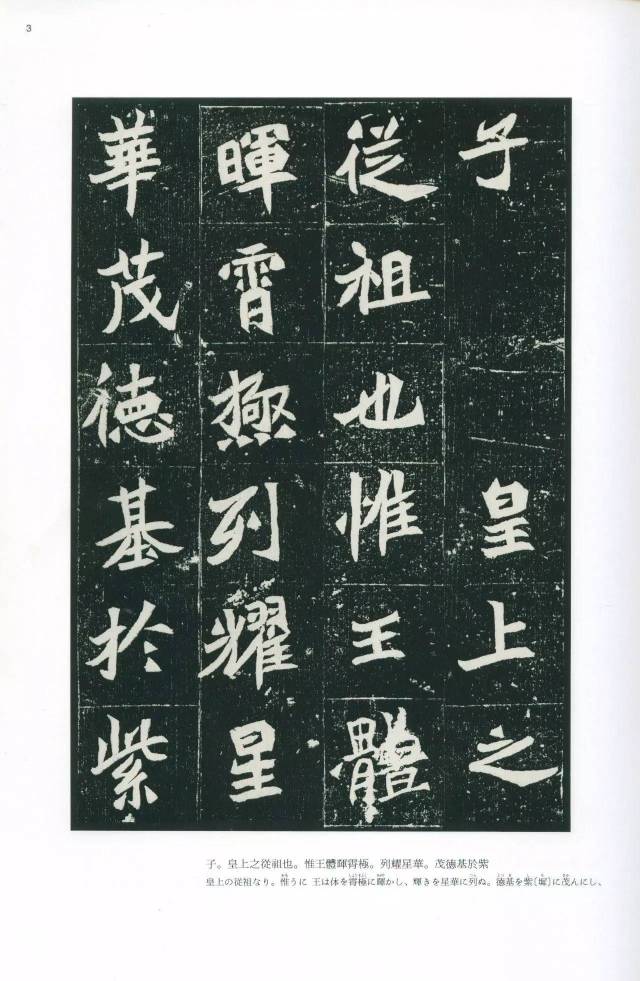 3
子皇上之
從祖也惟王體
暉霄極列耀星
華茂德基於紫
子。皇上之從祖也。惟王體暉霄極。列耀星華。茂德基於紫
皇上の從祖なり。惟うに 王は体を霄極に暉かし、輝きを星華に列ぬ。德基を紫〔墀〕に茂んにし、